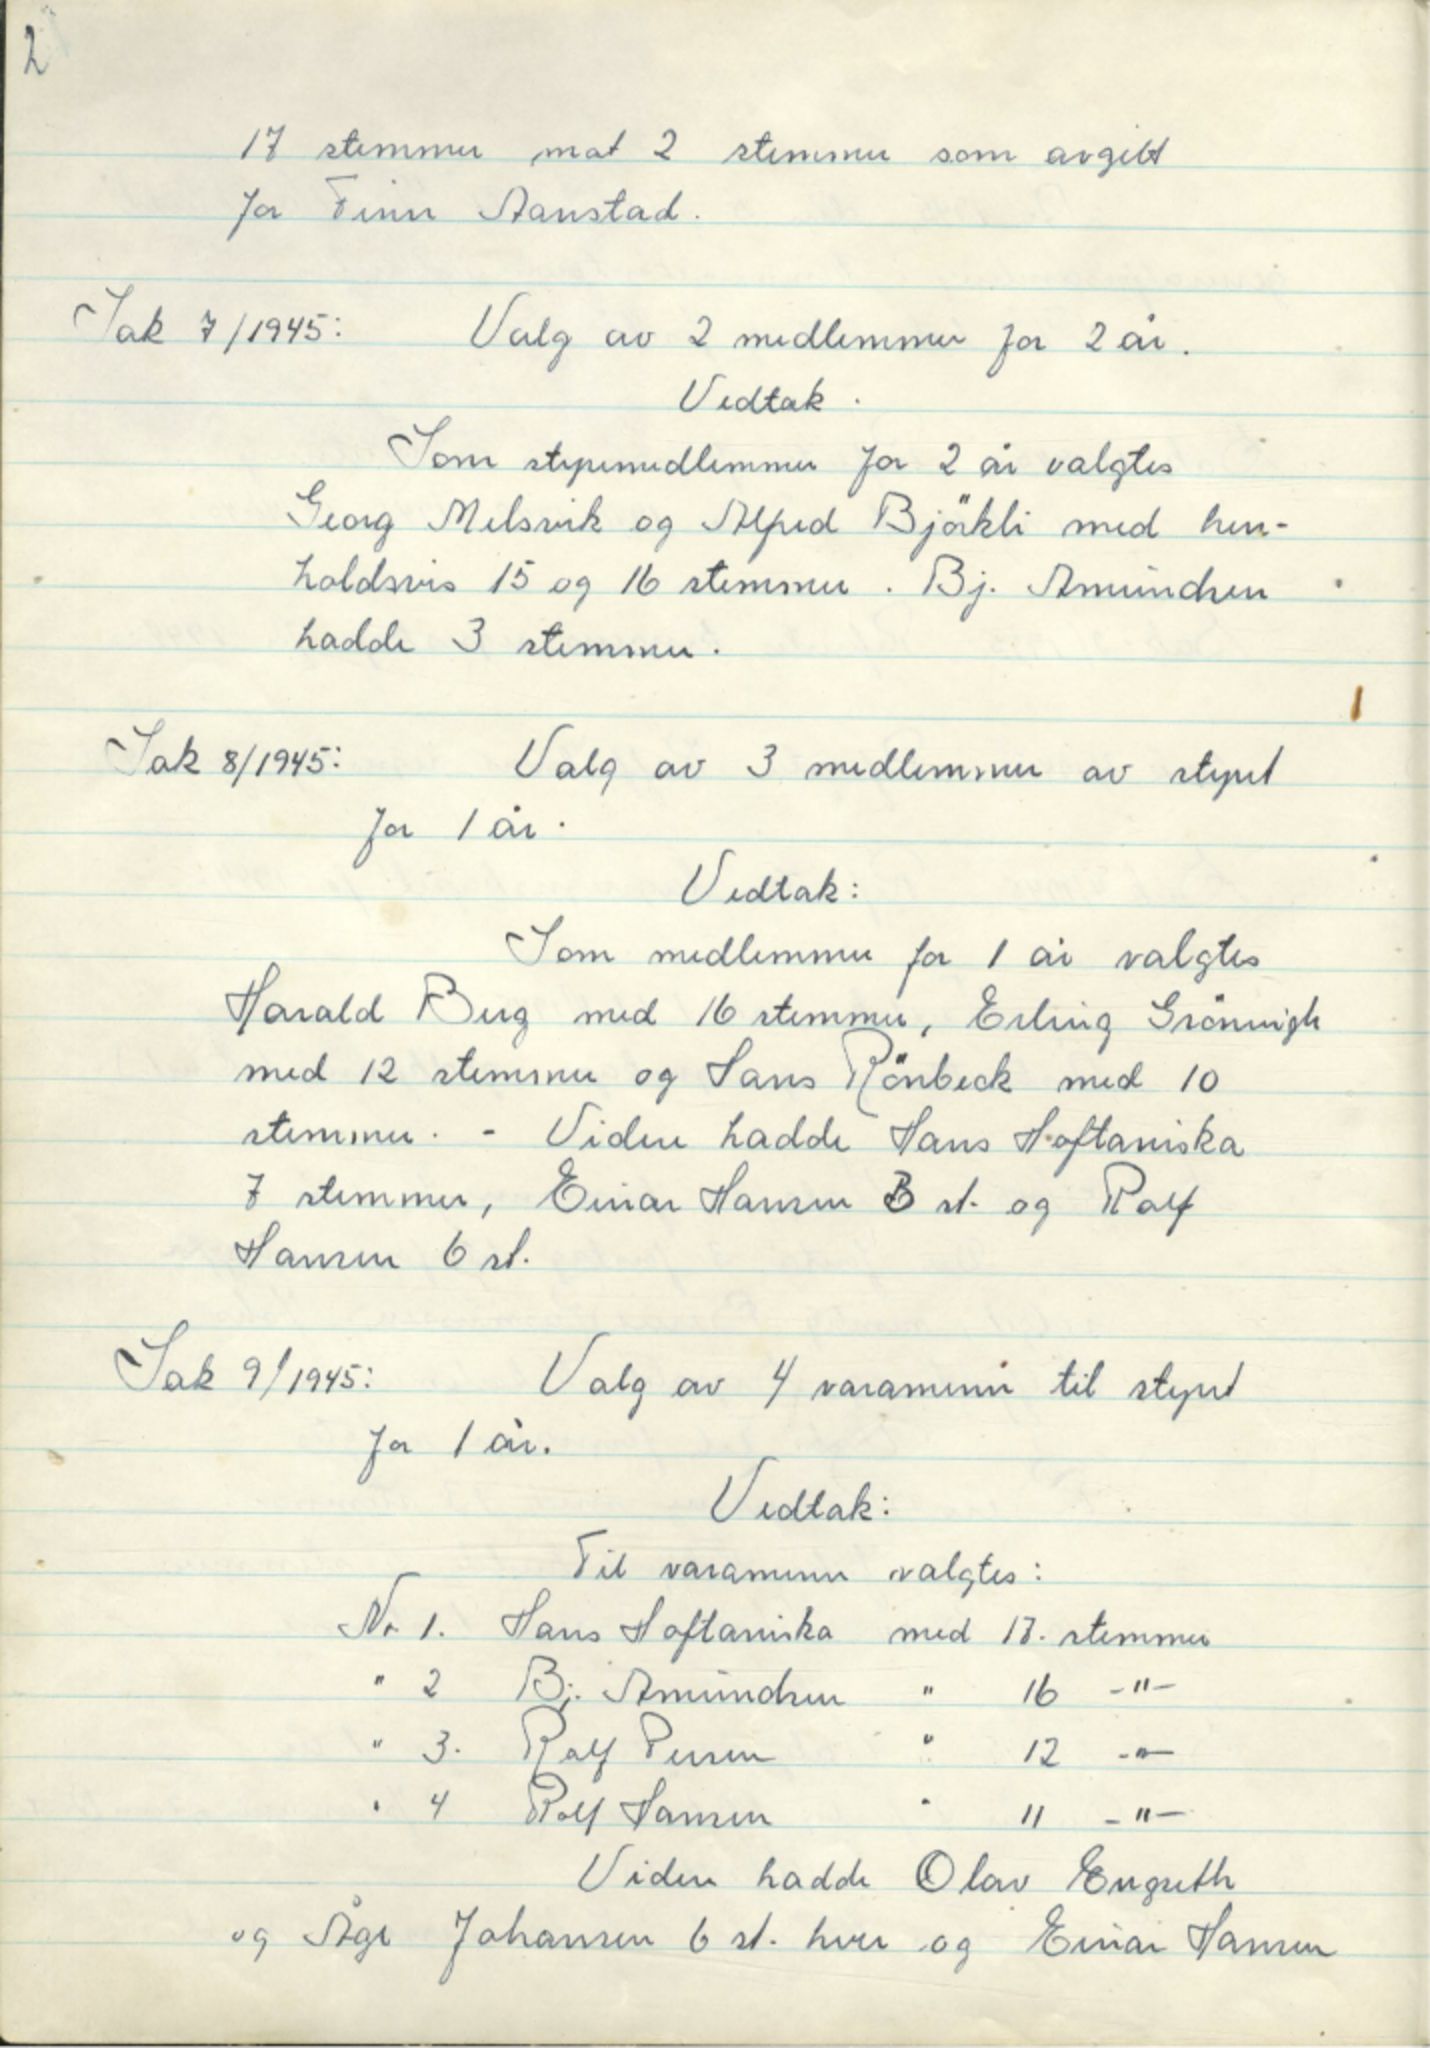 2
17 stemmer mot 2 stemmer som avgitt
for Finn Aanstad.
Sak 7/1945: Valg av 2 medlemmer for 2 år.
Vedtak.
Som styremedlemmer for 2 år valgtes
Georg Melsvik og Alfred Björkli med hen-
holdsvis 15 og 16 stemmer. Bj. Amundsen
hadde 3 stemmer.
Sak 8/1945: Valg av 3 medlemmer av styret
for 1 år.
Vedtak:
Som medlemmer for 1 år valgtes
Harald Berg med 16 stemmer, Erling Grönvigh
med 12 stemmer og Hans Rönbeck med 10
stemmer. - Videre hadde Hans Hoftaniska
7 stemmer, Einar Hansen 3 st. og Rolf
Hansen 6 st.
Sak 9/1945: Valg av 4 varamenn til styret
for 1 år.
Vedtak:
Til varamenn valgtes:
Nr 1. Hans Hoftaniska med 17. stemmer
" 2 Bj. Amundsen " 16 -"-
" 3. Rolf Persen " 12 -"-
" 4 Rolf Hansen " 11 -"-
Videre hadde Olav Engseth
og Åge Johansen 6 st. hver og Einar Hansen